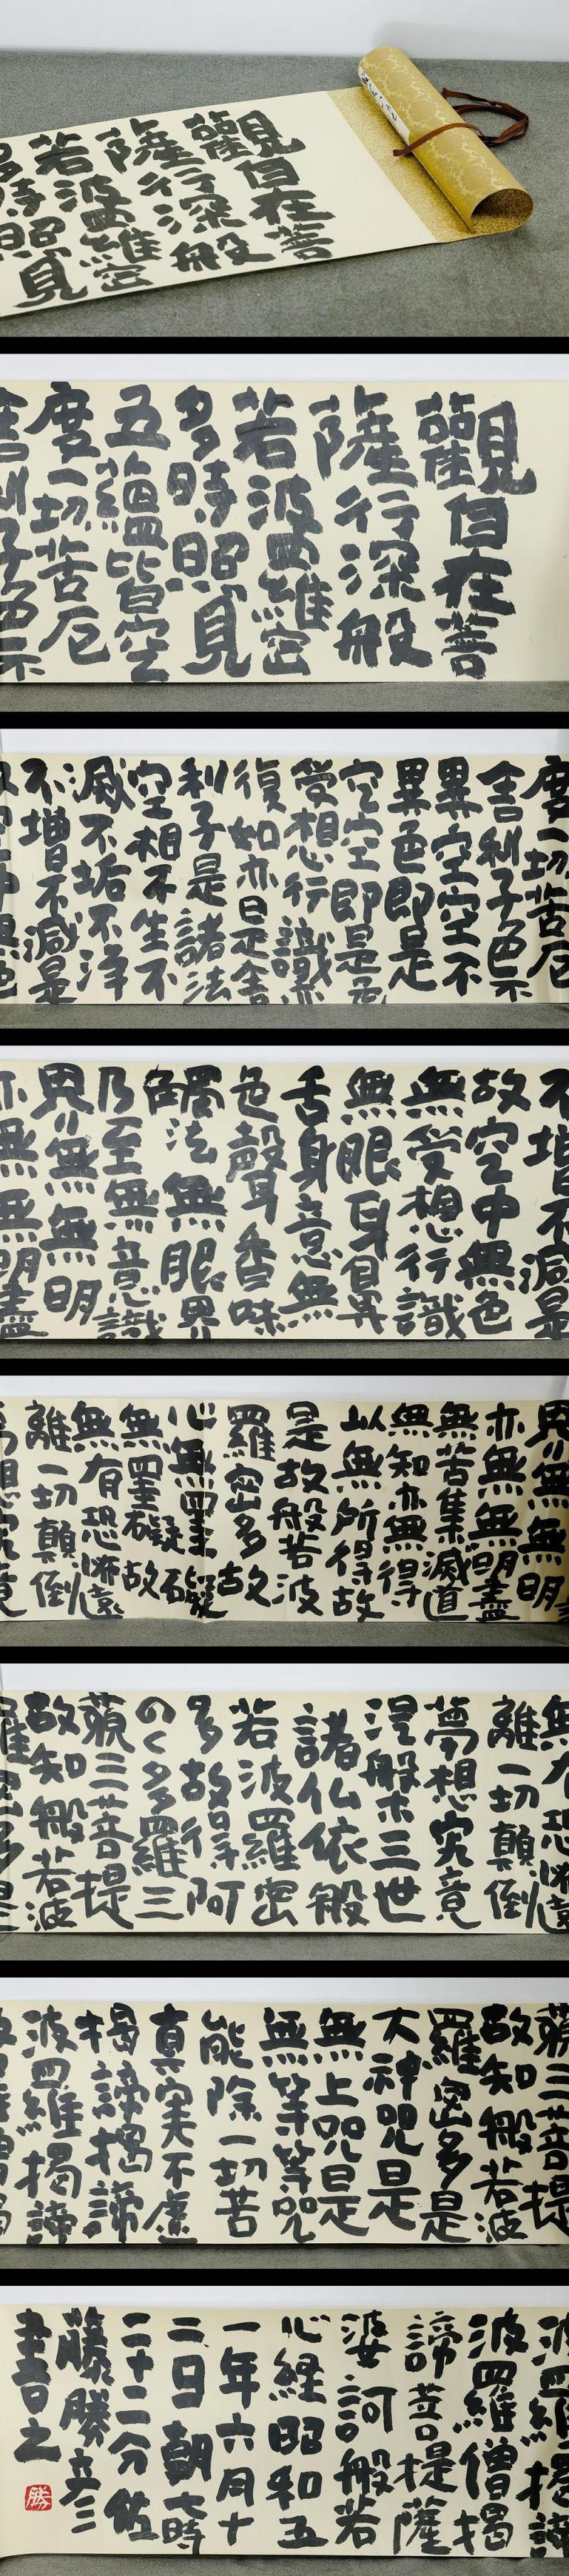 觀自在菩
薩行深般
若波羅密
多時照見
觀自在菩
薩行深般
若波羅密
多時照見
五蘊皆空
度一切苦厄
舍利子色不
度一切苦厄
舍利子色不
異空空不
異色即是
空空即是色
受想行識
復如亦是舍
利子是諸法
空相不生不
滅不垢不淨
不增不減是
不增不減是
故空中無色
無受想行識
無眼耳鼻
舌身意無
色聲香味
觸法無眼界
乃至無意識
界無無明
亦無無明盡
界無無明
亦無無明盡
無苦集滅道
無知亦無得
以無所得故
是故般若波
羅密多故
心無罣礙
無罣礙故
無有恐怖遠
離一切顛倒
無有恐怖遠
離一切顛倒
夢想究竟
涅槃三世
諸仏依般
若波羅密
多故得阿
のく多羅三
藐三菩提
故知般若波
藐三菩提
故知般若波
羅密多是
大神咒是
無上咒是
無等等咒
能除一切苦
真実不虛
揭諦揭諦
波羅揭諦
波羅揭諦
波羅僧揭
諦菩提薩
婆訶般若
心経昭和五
一年六月十
二日朝七時
二十二分佐
藤勝彦
書之
勝